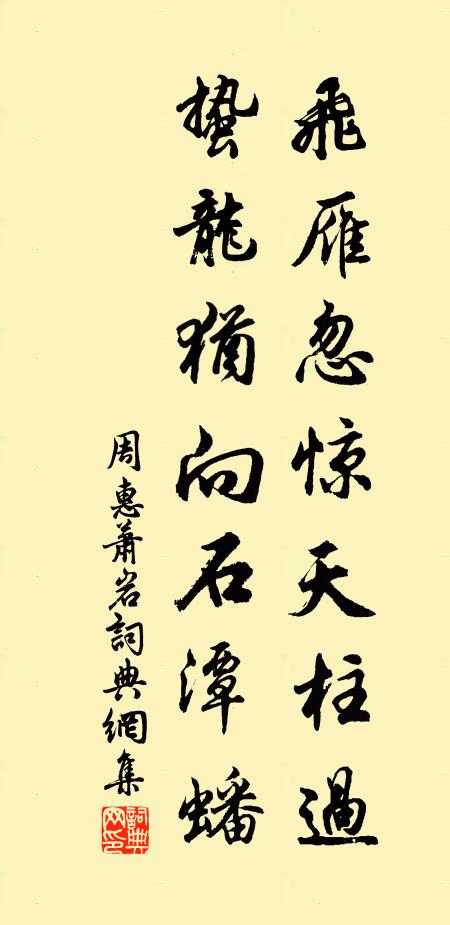 飛雁忽惊天柱過
蟄龍猶向石潭蟠
周惠萧岩詞典網集
詞典网印